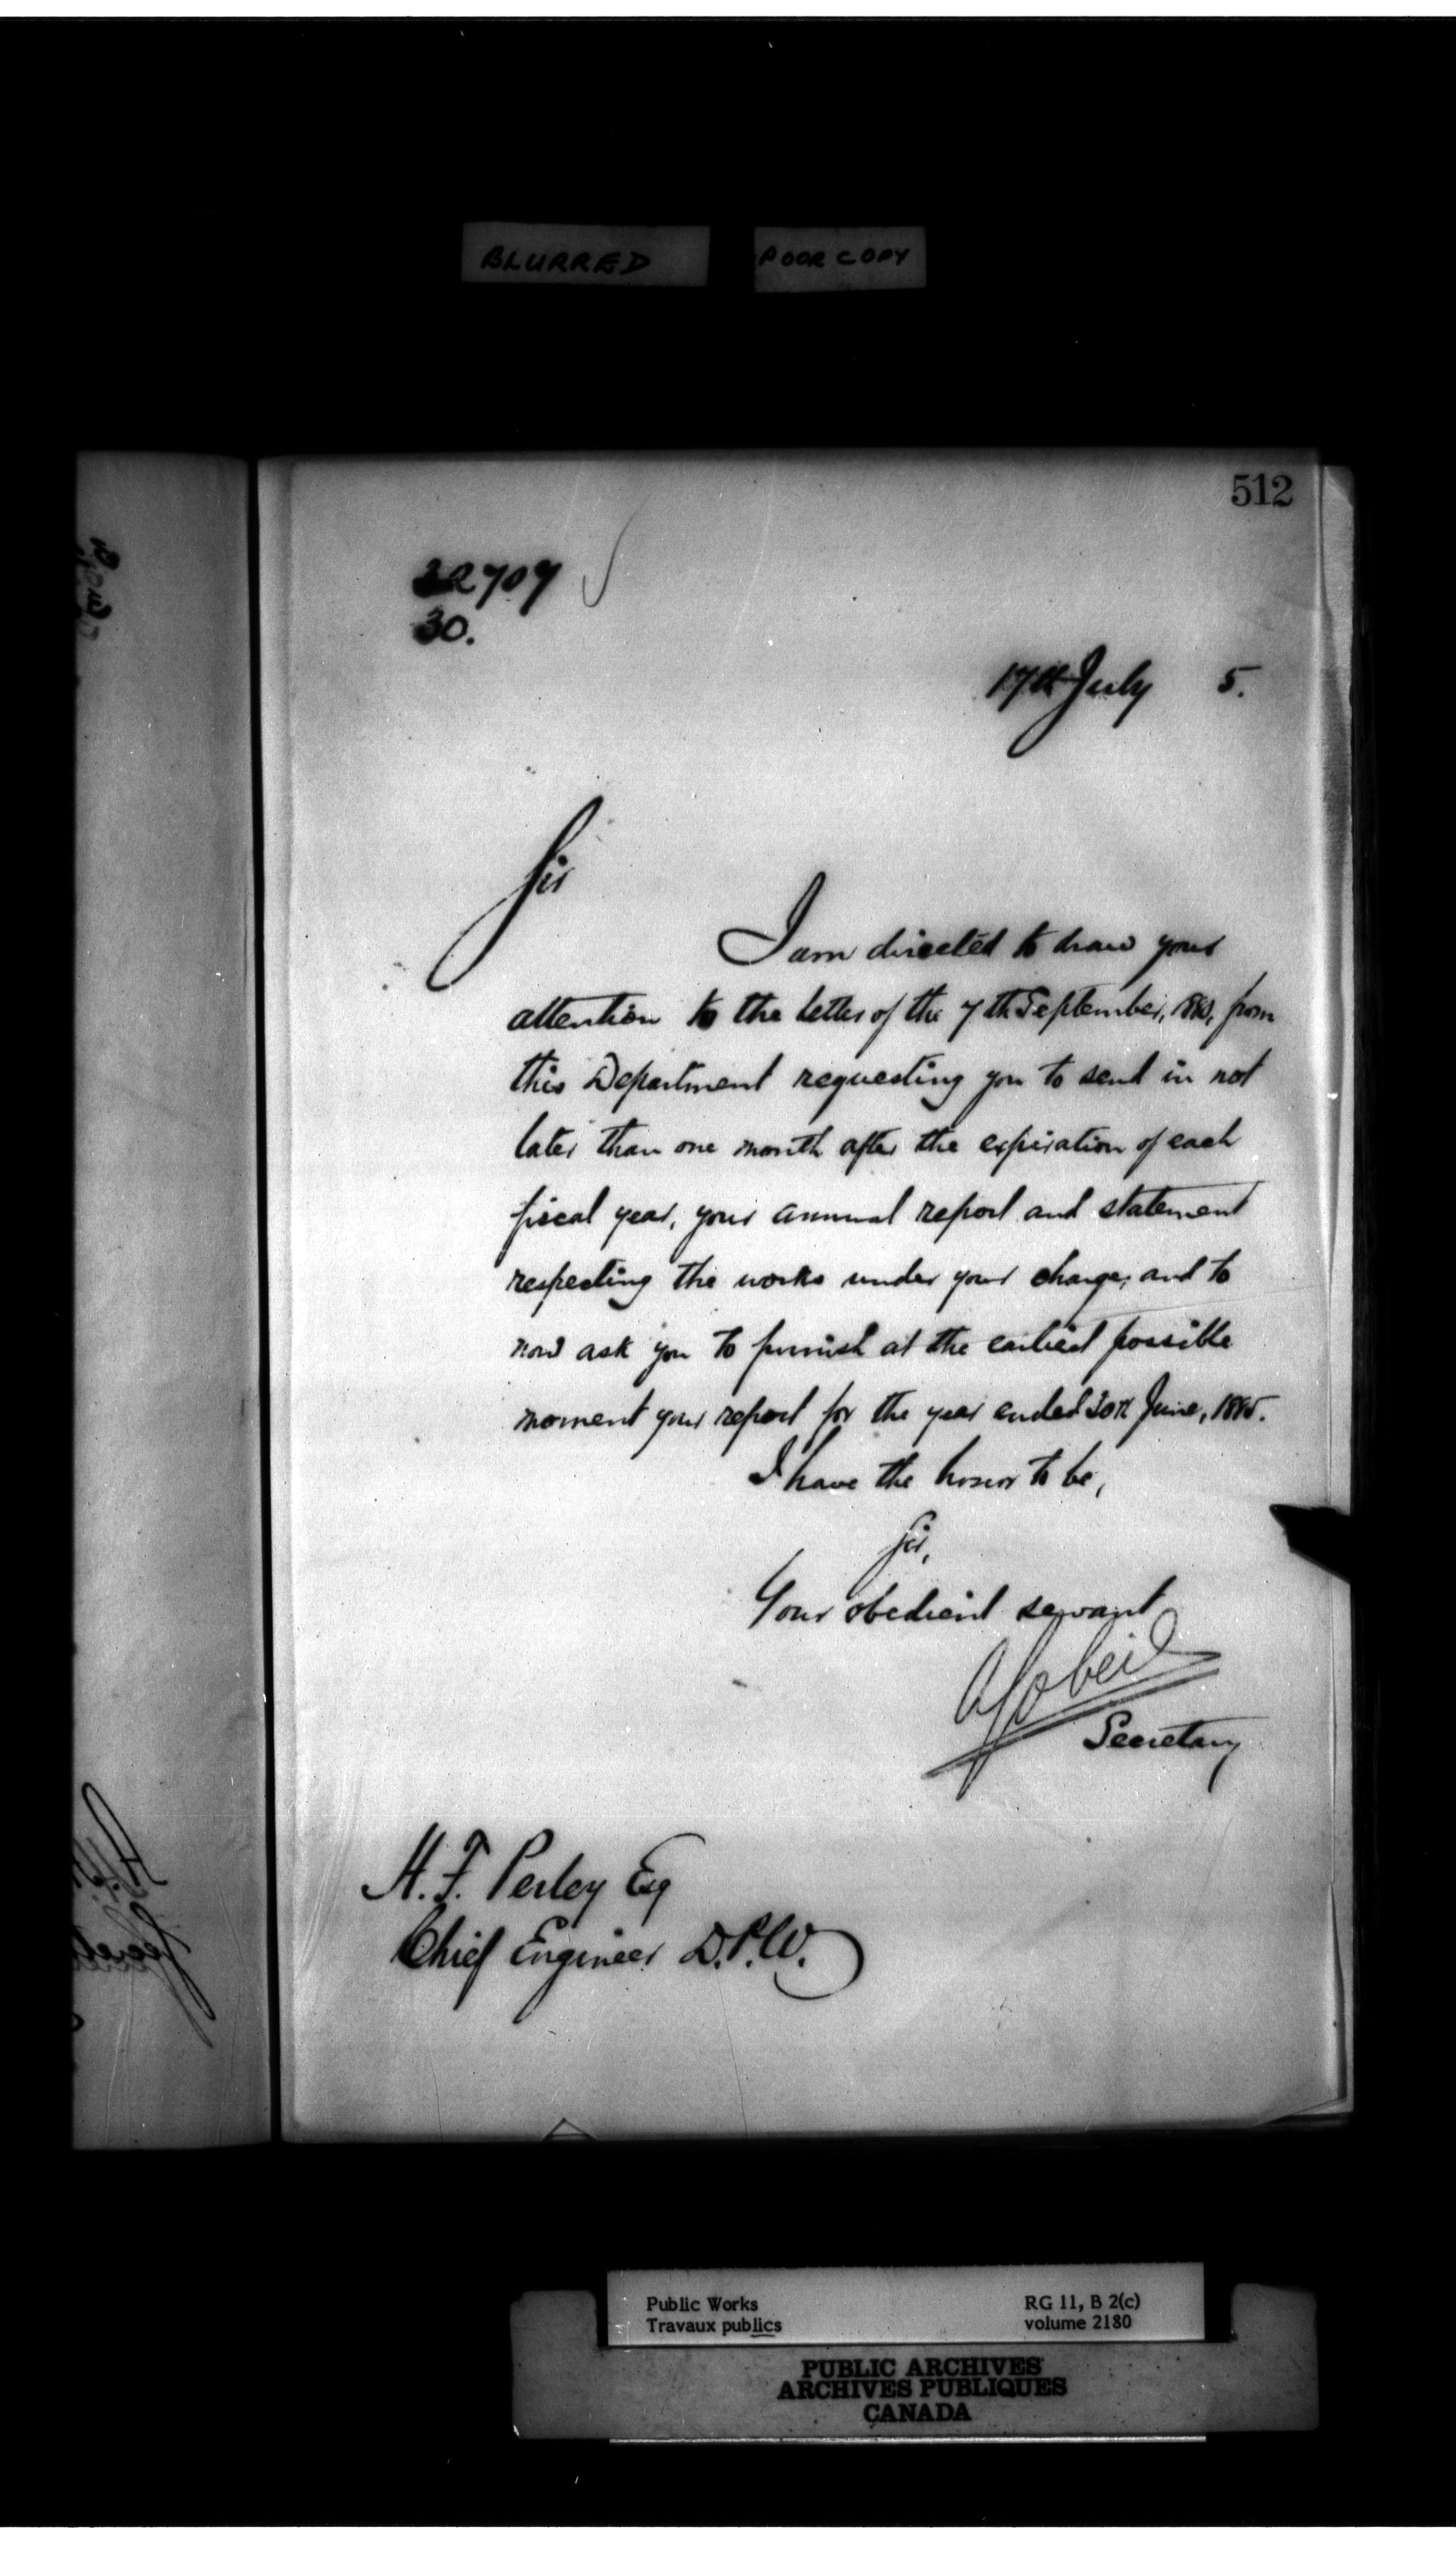 BLURRED
POOR COPY
512
22707
30.
17th July 5.
Sir
I am directed to draw your
attention to the letter of the 7th September, from
this Department requesting you to send in not
later than one month after the expiration of each
fiscal year, your annual report and statement
respecting the works under your charge, and to
now ask you to furnish at the earliest possible
moment your report for the year ended 30th June, 1885.
I have the honor to be,
Sir,
Your obedient servant
AGobeil
Secretary
H. F. Perley Esq
Chief Engineer D.P.W.
Public Works
Travaux publics
RG 11, B 2(c)
volume 2180
PUBLIC ARCHIVES
ARCHIVES PUBLIQUES
CANADA